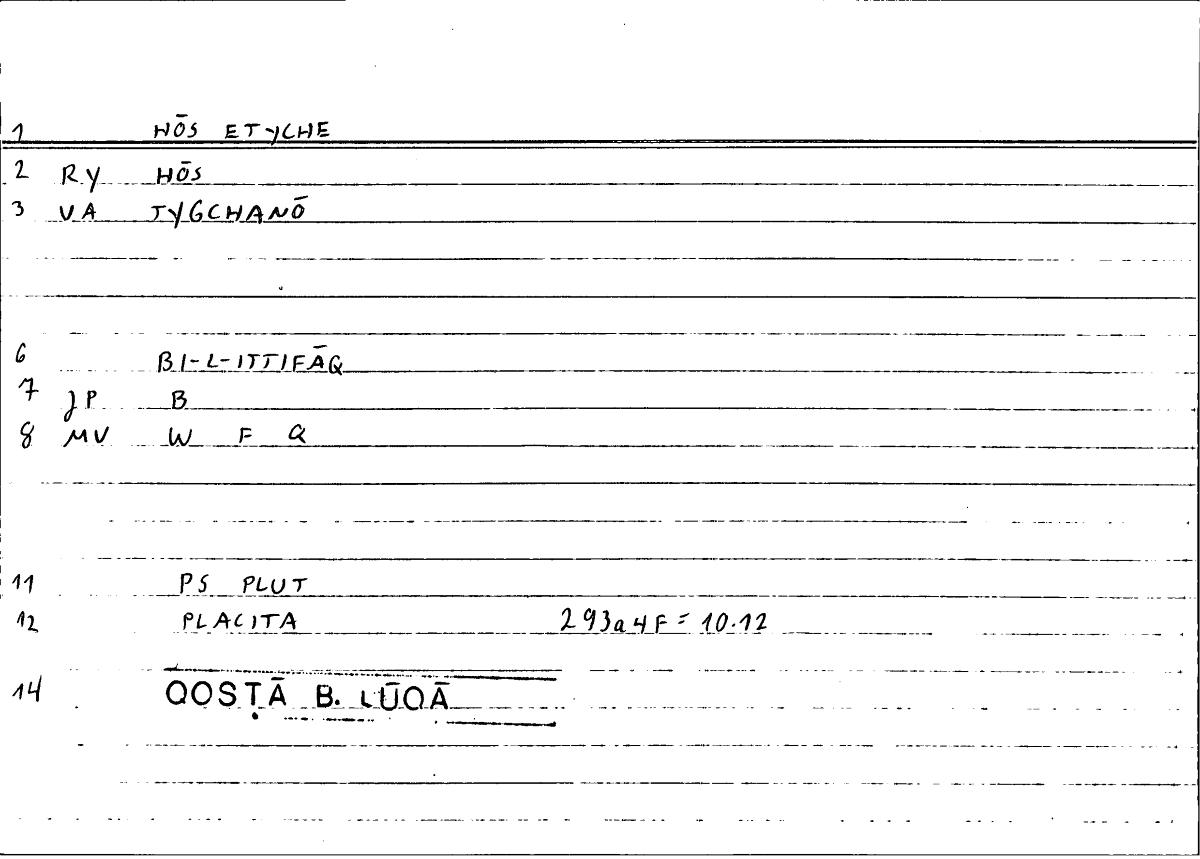 1 HŌS ETYCHE
2 RY HŌS
3 VA TYGCHANŌ
6 BI-L-ITTIFĀQ
7 JP B
8 MV W F Q
11 PS PLUT
12 PLACITA 293a4F = 10.12
14 QOSṬĀ B. LŪQĀ